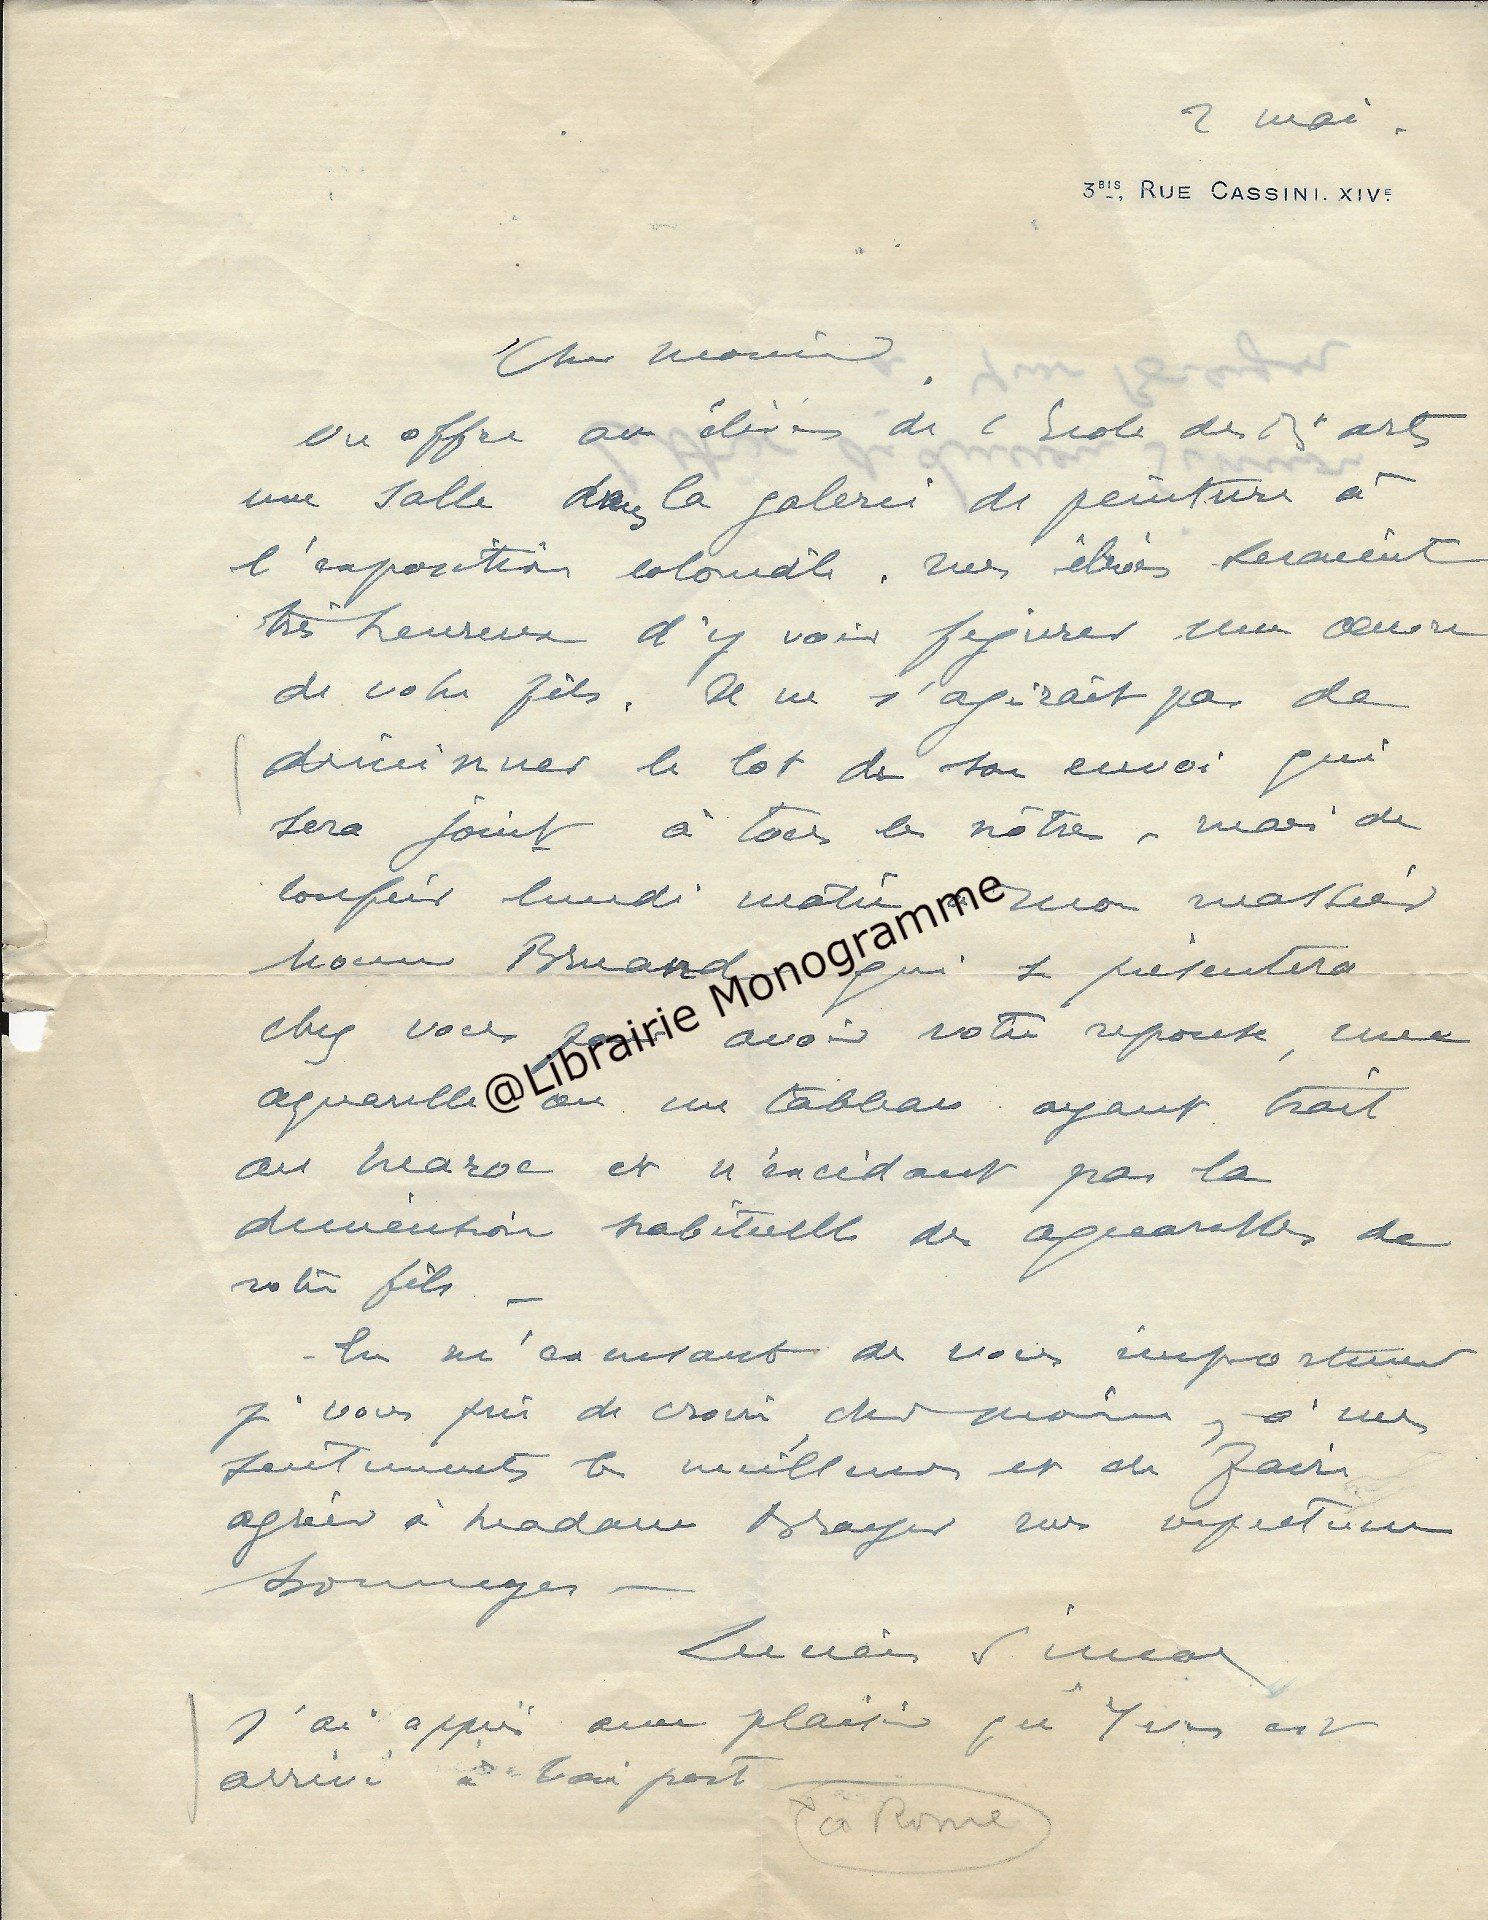 2 mai.
3BIS, RUE CASSINI. XIVE
Cher monsieur,
on offre aux élèves de l'Ecole des B. arts
une salle dans la galerie de peinture à
l'exposition coloniale. mes élèves seraient
très heureux d'y voir figurer une œuvre
de votre fils. Il ne s'agirait pas de
diminuer le lot de son envoi qui
sera joint à tous les nôtres, mais de
confier lundi matin à mon massier
nommé Bruand qui se présentera
chez vous pour avoir votre reponse, une
aquarelle ou un tableau ayant trait
au Maroc et n'excédant pas la
dimension habituelle des aquarelles de
votre fils –
- En m'excusant de vous importuner
je vous prie de croire, cher monsieur, à mes
sentiments les meilleurs et de faire
agréer à Madame Brayer mes respectueux
hommages –
Lucien Simon
J'ai appris avec plaisir qu'Yves est
arrivé à bon port
à Rome
@Librairie Monogramme